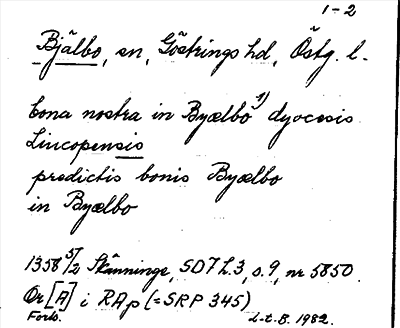 1-2
Bjälbo, sn, Göstrings hd, Östg. l.
bona nostra in Byælbo 1) dyocesis
Lincopensis
predictis bonis Byælbo
in Byælbo
1358 5/2 Skänninge, SD7 h.3, s.9, nr 5850
Or [A] i RAp (=SRP 345)
Forts. L-t.B. 1982.